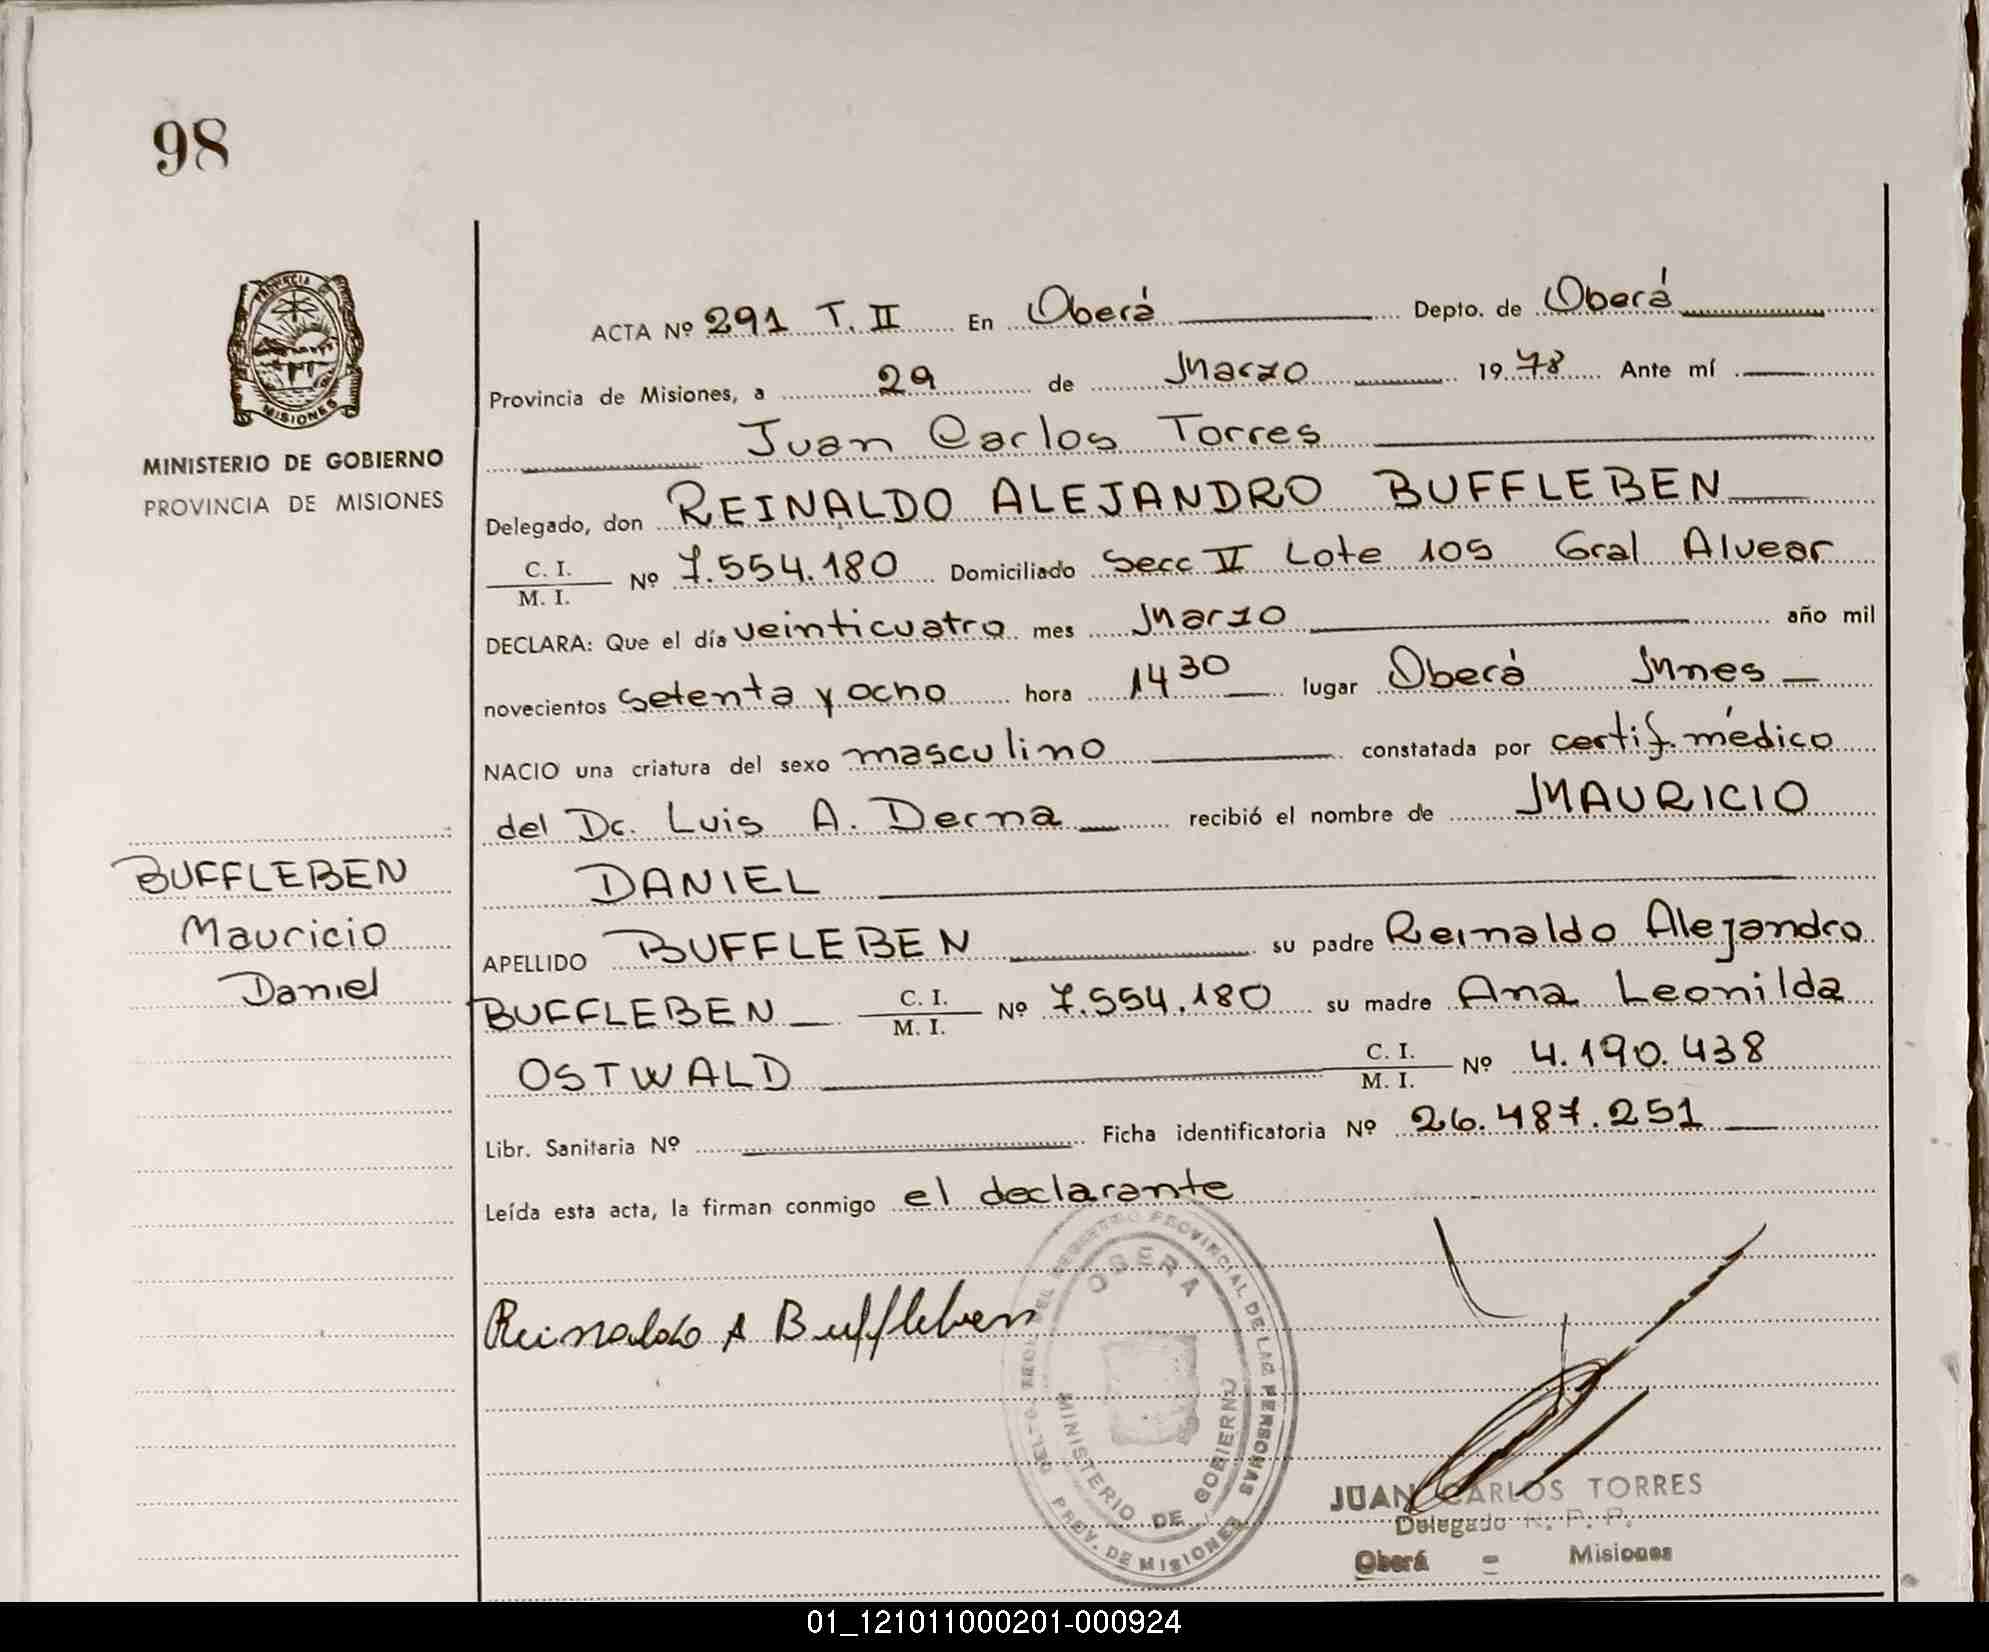 98
PROVINCIA DE
MISIONES
MINISTERIO DE GOBIERNO
PROVINCIA DE MISIONES
ACTA Nº 291 T. II En Oberá Depto. de Oberá
Provincia de Misiones, a 29 de Marzo 1978 Ante mí
Juan Carlos Torres
Delegado, don REINALDO ALEJANDRO BUFFLEBEN
C. I.
M. I. Nº 7.554.180 Domiciliado Secc V Lote 105 Gral Alvear
DECLARA: Que el día veinticuatro mes Marzo año mil
novecientos setenta y ocho hora 14 30 lugar Oberá Mnes
NACIO una criatura del sexo masculino constatada por certif. médico
del Dr. Luis A. Derna recibió el nombre de MAURICIO
DANIEL
APELLIDO BUFFLEBEN su padre Reinaldo Alejandro
BUFFLEBEN C. I.
M. I. Nº 7.554.180 su madre Ana Leonilda
OSTWALD C. I.
M. I. Nº 4.190.438
Libr. Sanitaria Nº Ficha identificatoria Nº 26.487.251
Leída esta acta, la firman conmigo el declarante
BUFFLEBEN
Mauricio
Daniel
Reinaldo A Buffleben
REGISTRO PROVINCIAL DE LAS PERSONAS
OBERA
MINISTERIO DE GOBIERNO
PROV. DE MISIONES
JUAN CARLOS TORRES
Delegado R. P. P.
Oberá - Misiones
01_121011000201-000924